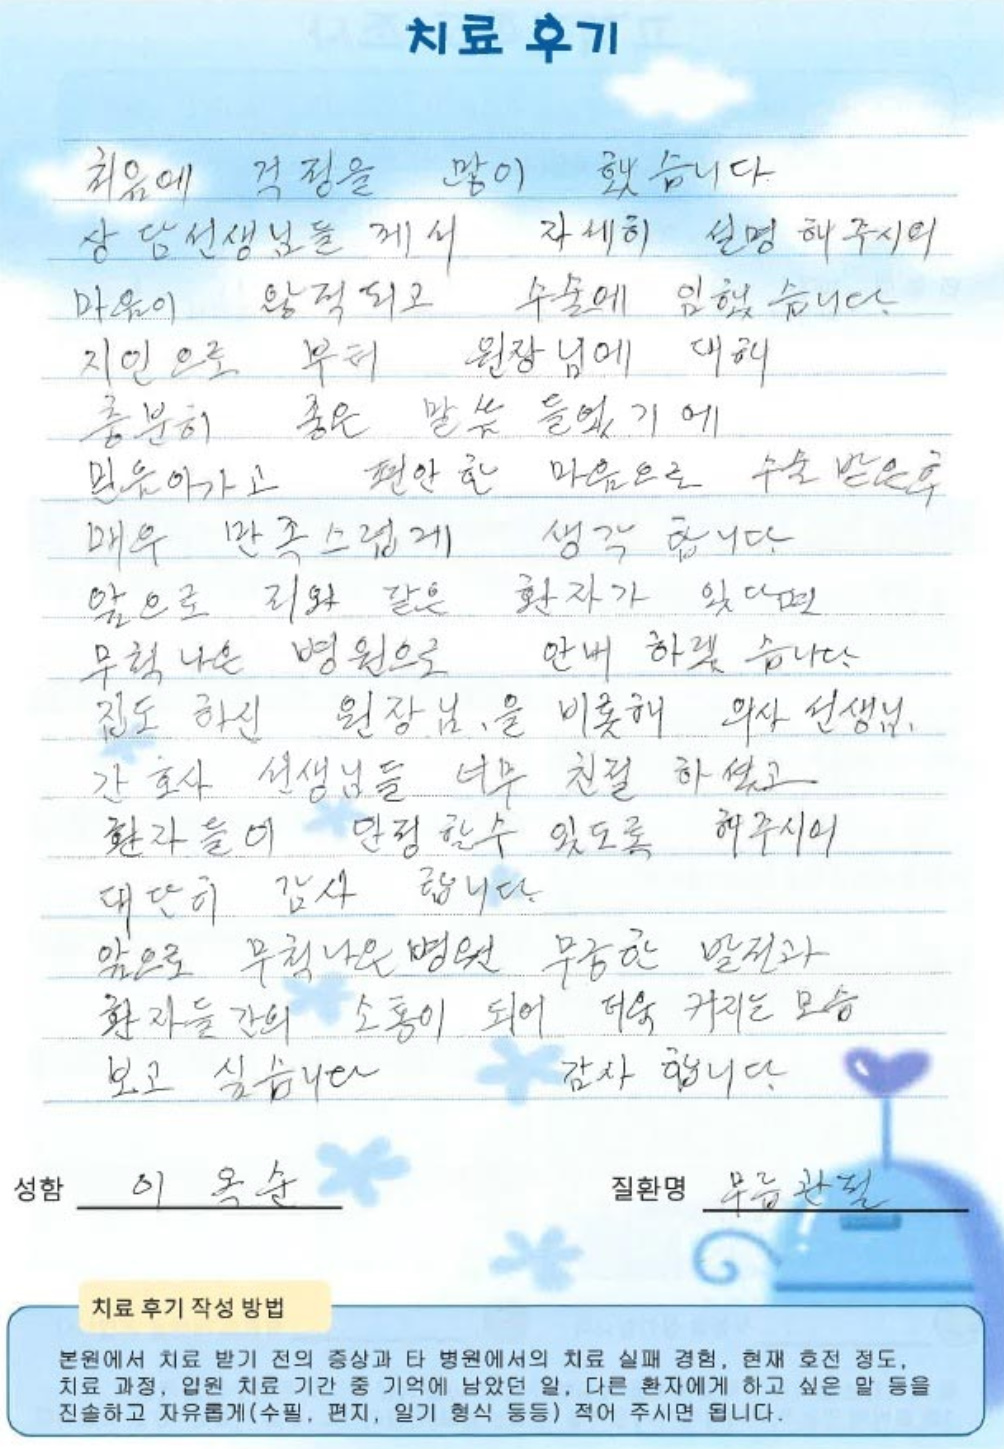 치료 후기
처음에 걱정을 많이 했습니다
상담선생님들 께서 자세히 설명 해주시어
마음이 안정되고 수술에 임했습니다
지인으로 부터 원장님에 대해
충분히 좋은 말씀 들었기에
믿음이가고 편안한 마음으로 수술받은후
매우 만족스럽게 생각 합니다
앞으로 저와 같은 환자가 있다면
무척나은 병원으로 안내 하겠습니다
집도 하신 원장님.을 비롯해 의사 선생님.
간호사 선생님들 너무 친절 하셨고
환자들이 안정 할수 있도록 해주시어
대단히 감사 합니다.
앞으로 무척나은병원 무궁한 발전과
환자들간의 소통이 되어 더욱 커지는 모습
보고 싶습니다 감사 합니다
성함 이옥순 질환명 무릎관절
치료 후기 작성 방법
본원에서 치료 받기 전의 증상과 타 병원에서의 치료 실패 경험, 현재 호전 정도,
치료 과정, 입원 치료 기간 중 기억에 남았던 일, 다른 환자에게 하고 싶은 말 등을
진솔하고 자유롭게(수필, 편지, 일기 형식 등등) 적어 주시면 됩니다.